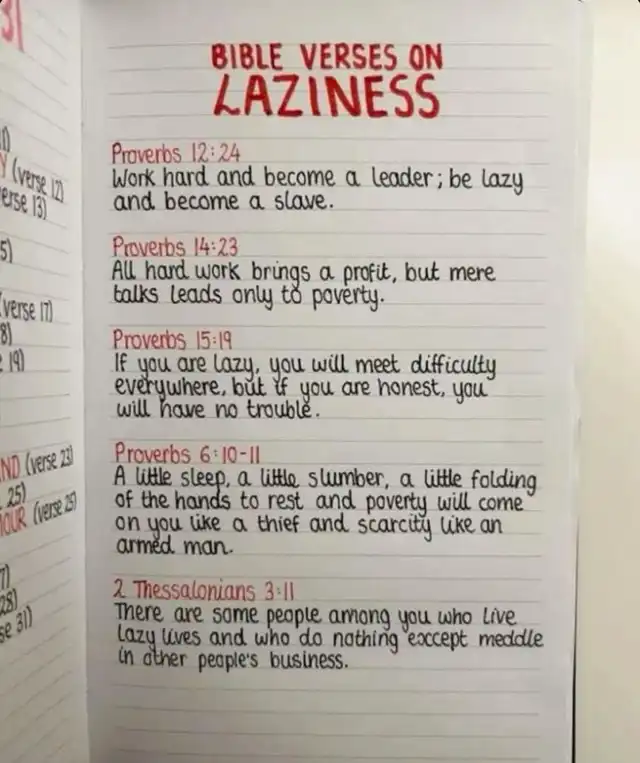 31
1)
Y (verse 12)
erse 13)
5)
(verse 17)
8)
19)
ND (verse 23)
25)
OUR (verse 25)
7)
28)
se 31)
BIBLE VERSES ON
LAZINESS
Proverbs 12:24
Work hard and become a leader; be lazy
and become a slave.
Proverbs 14:23
All hard work brings a profit, but mere
talks leads only to poverty.
Proverbs 15:19
If you are lazy, you will meet difficulty
everywhere, but if you are honest, you
will have no trouble.
Proverbs 6:10-11
A little sleep, a little slumber, a little folding
of the hands to rest and poverty will come
on you like a thief and scarcity like an
armed man.
2 Thessalonians 3:11
There are some people among you who live
lazy lives and who do nothing except meddle
in other people's business.